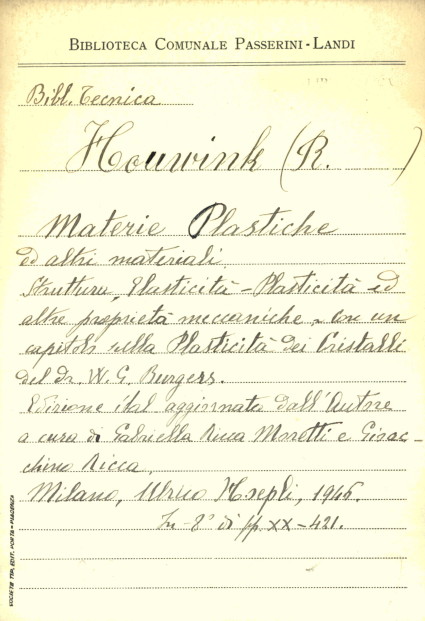 BIBLIOTECA COMUNALE PASSERINI-LANDI
Bibl. Tecnica
Houwink (R. )
Materie Plastiche
ed altri materiali.
Struttura, Elasticità - Plasticità ed
altre proprietà meccaniche - con un
capitolo sulla Plasticità dei Cristalli
del dr. W. G. Burgers.
Edizione ital aggiornata dall'Autore
a cura di Gabriella Ricca Moretti e Gioac-
chino Ricca.
Milano, Ulrico Hoepli, 1946.
In-8° di pp. XX-421.
SOCIETÀ TIP. EDIT. PORTA - PIACENZA